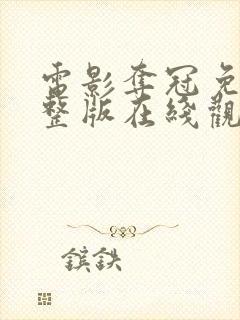 電影奪冠免
整版在綫觀
鎫鉄